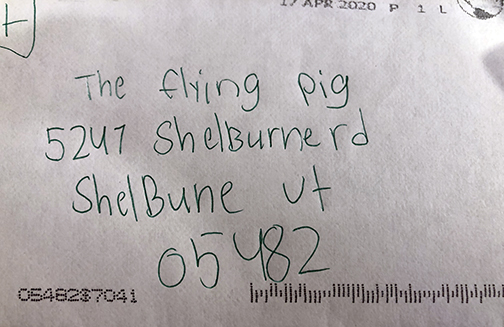 17 APR 2020 P 1 L
The flying pig
5247 Shelburne rd
ShelBune vt
05482
05482$7041